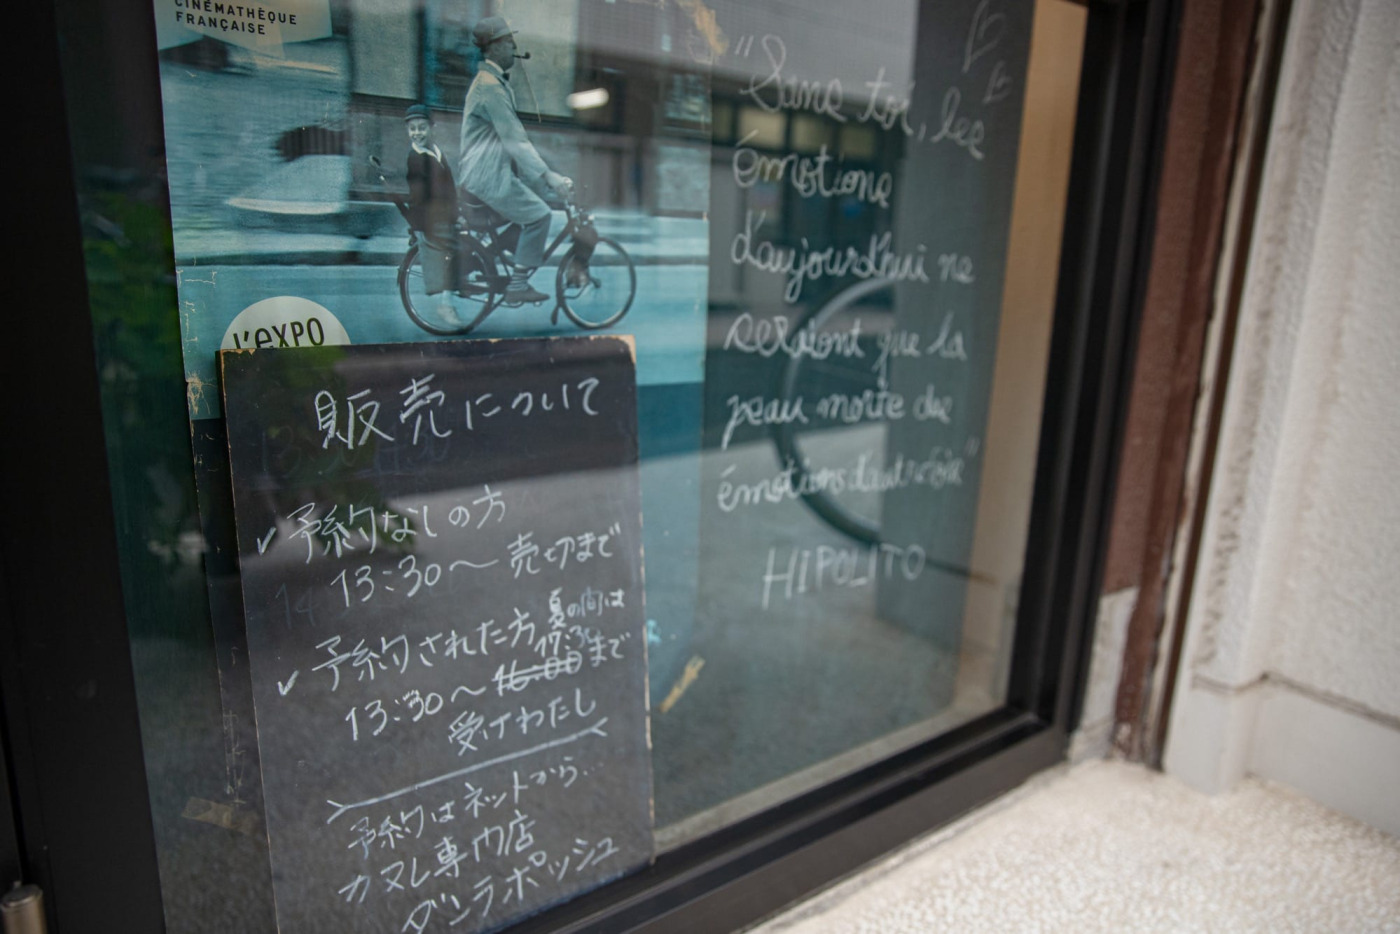 CINÉMATHÈQUE
FRANÇAISE
L'EXPO
販売について
✓予約なしの方
13:30〜売切まで
✓予約された方
夏の間は
17:30
13:30〜16:00まで
受けわたし
予約はネットから...
カヌレ専門店
ダンラポッシュ
"Sans toi, les
émotions
d'aujourd'hui ne
seraient que la
peau morte des
émotions d'autrefois"
HIPOLITO